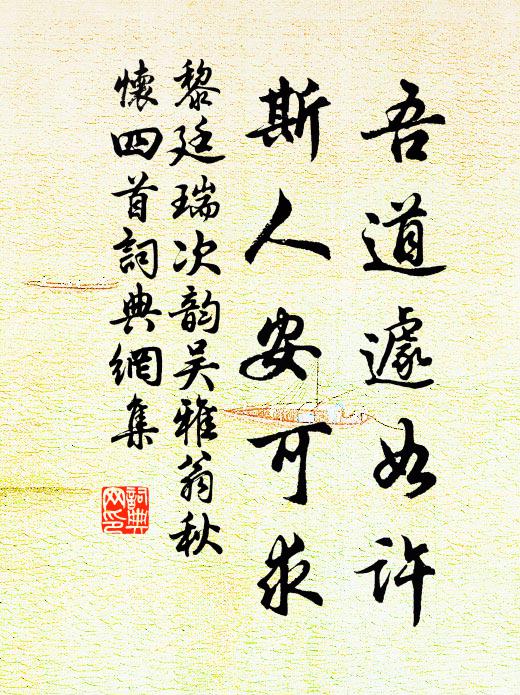 吾道遽如許
斯人安可求
黎廷瑞次韵吴雅翁秋
懷四首詞典網集
詞典
网印